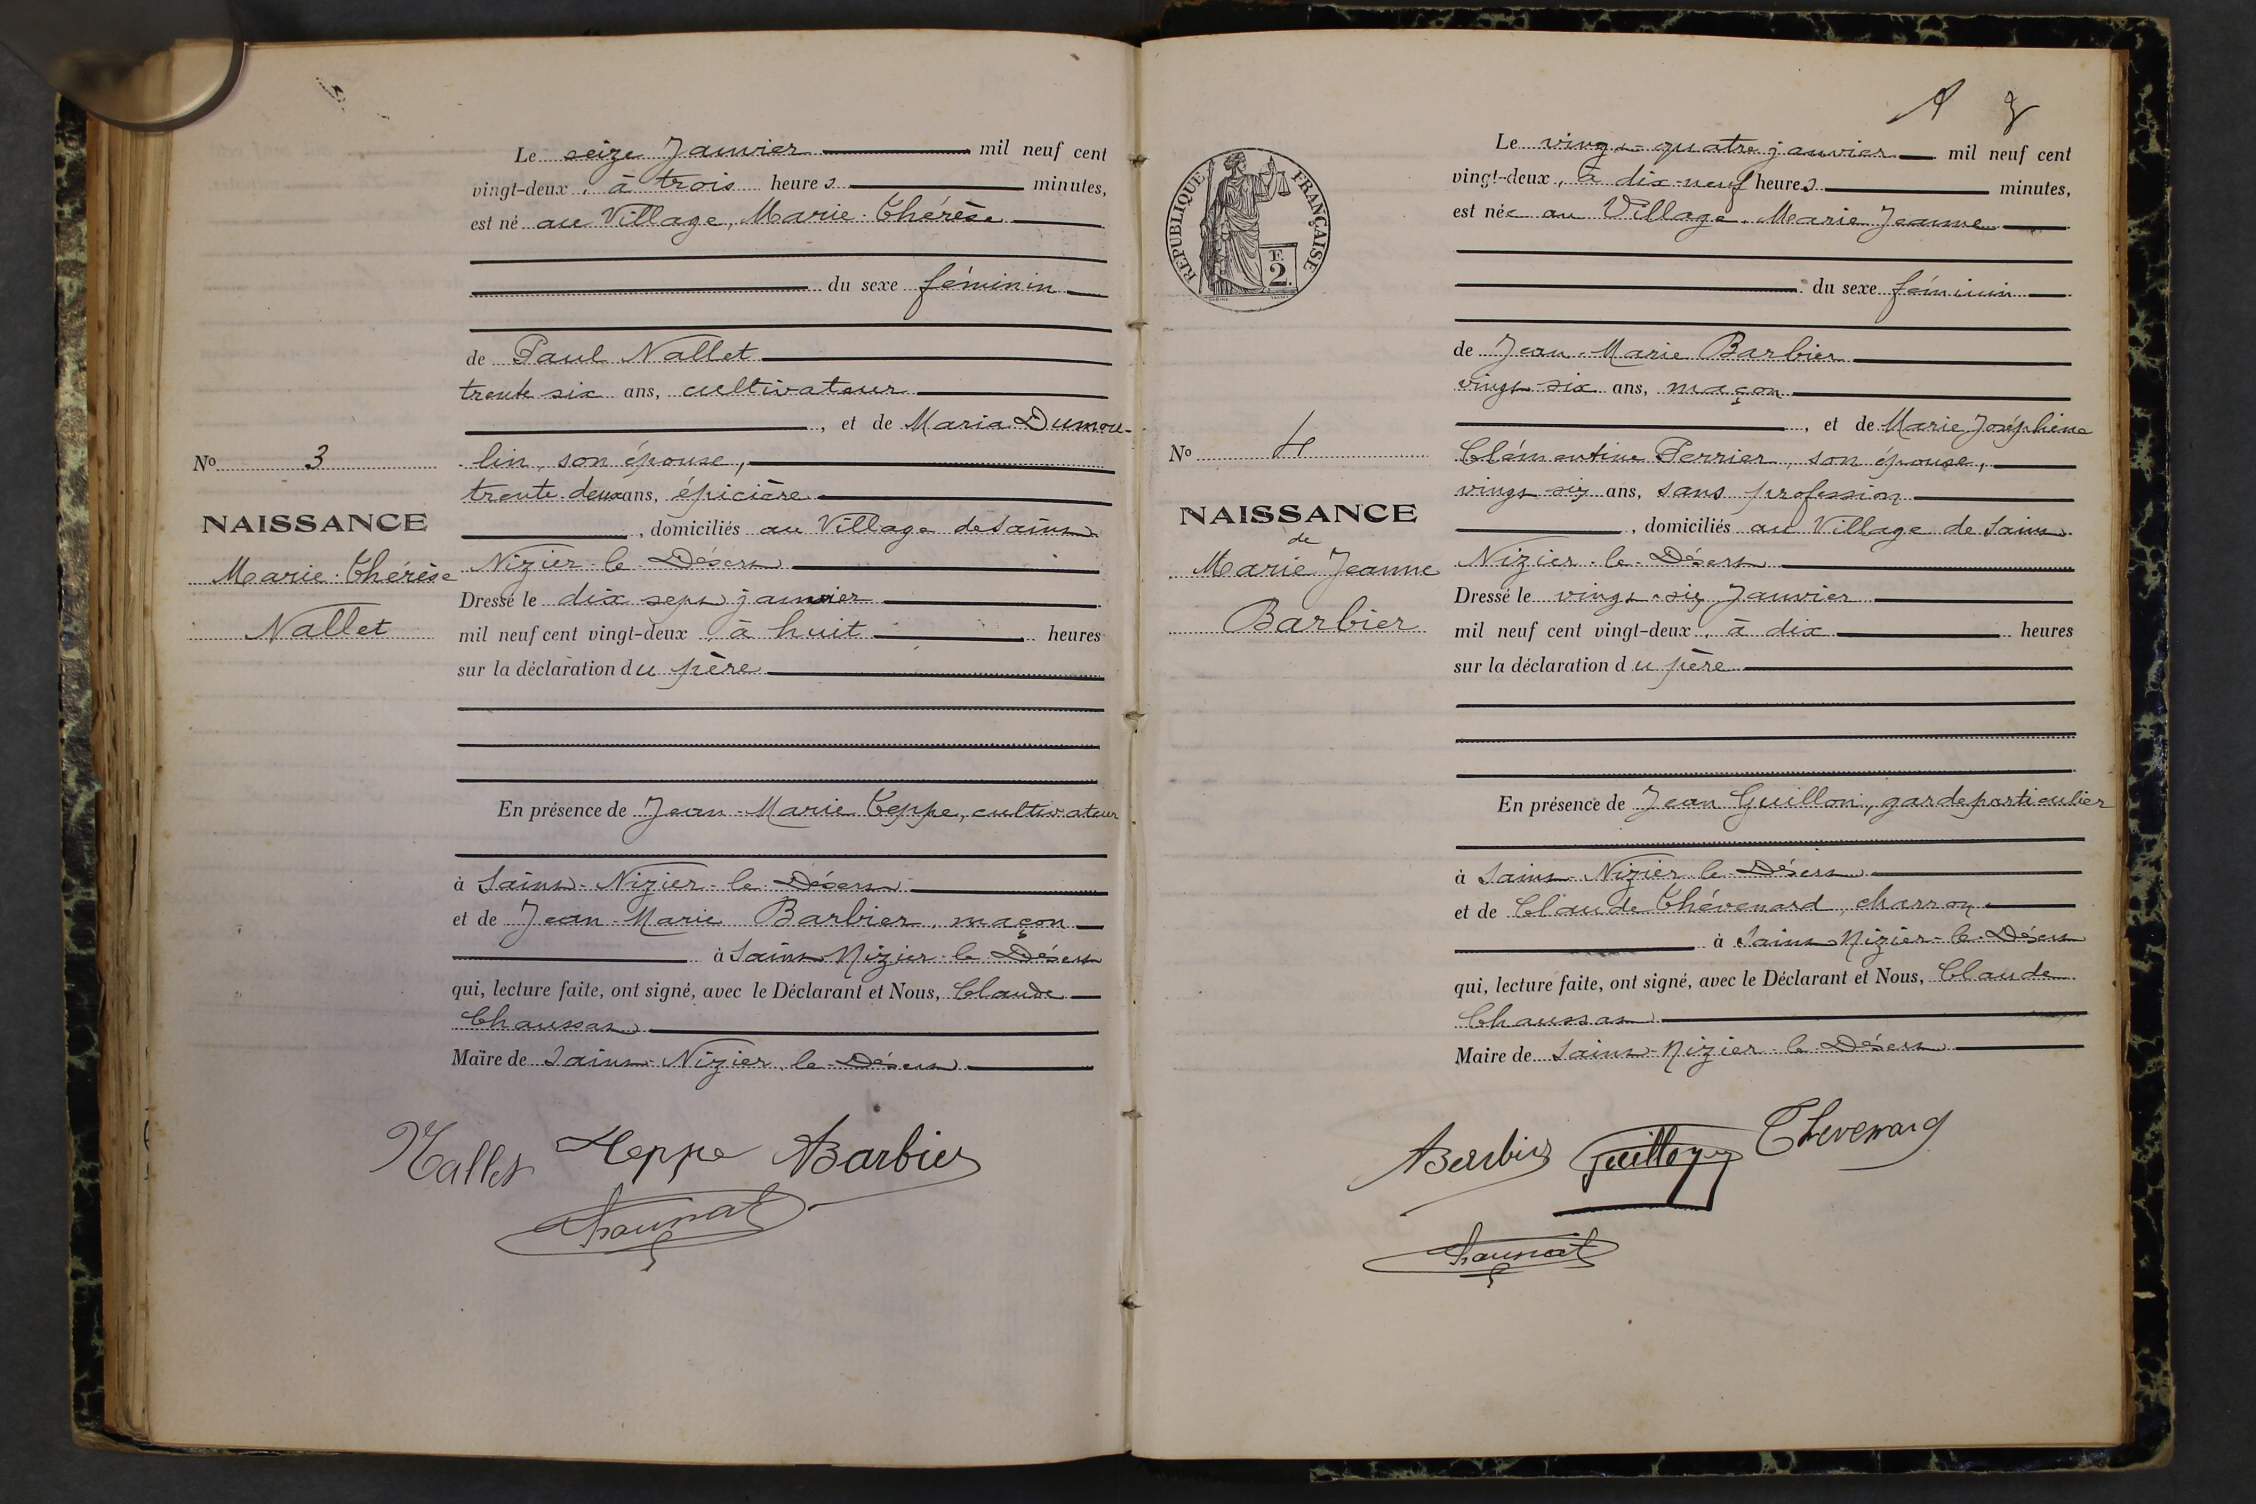 Le seize Janvier mil neuf cent
vingt-deux, à trois heures minutes,
est né au Village, Marie-Thérèse
du sexe féminin
de Paul Nallet
trente six ans, cultivateur
, et de Maria Dumou-
lin, son épouse,
trente-deux ans, épicière
, domiciliés au Village de Saint
Nizier-le-Désert
Dressé le dix sept janvier
mil neuf cent vingt-deux, à huit heures
sur la déclaration du père
En présence de Jean-Marie Teppe, cultivateur
à Saint-Nizier-le-Désert
et de Jean-Marie Barbier, maçon
à Saint Nizier-le-Désert
qui, lecture faite, ont signé, avec le Déclarant et Nous, Claude
Chaussat
Maire de Saint-Nizier-le-Désert
No 3
NAISSANCE
Marie-Thérèse
Nallet
Nallet Teppe Barbier
Chaussat
REPUBLIQUE FRANÇAISE
F.
2.
Le vingt-quatre janvier mil neuf cent
vingt-deux, à dix-neuf heures minutes,
est née au Village, Marie Jeanne
du sexe féminin
de Jean-Marie Barbier
vingt six ans, maçon
, et de Marie Joséphine
Clémentine Perrier, son épouse,
vingt six ans, sans profession
, domiciliés au Village de Saint
Nizier-le-Désert
Dressé le vingt-six Janvier
mil neuf cent vingt-deux, à dix heures
sur la déclaration du père
En présence de Jean Guillon, garde particulier
à Saint-Nizier-le-Désert
et de Claude Thévenard, charron
à Saint Nizier-le-Désert
qui, lecture faite, ont signé, avec le Déclarant et Nous, Claude
Chaussat
Maire de Saint-Nizier-le-Désert
No 4
NAISSANCE
de
Marie Jeanne
Barbier
Barbier Guillon Thevenard
Chaussat